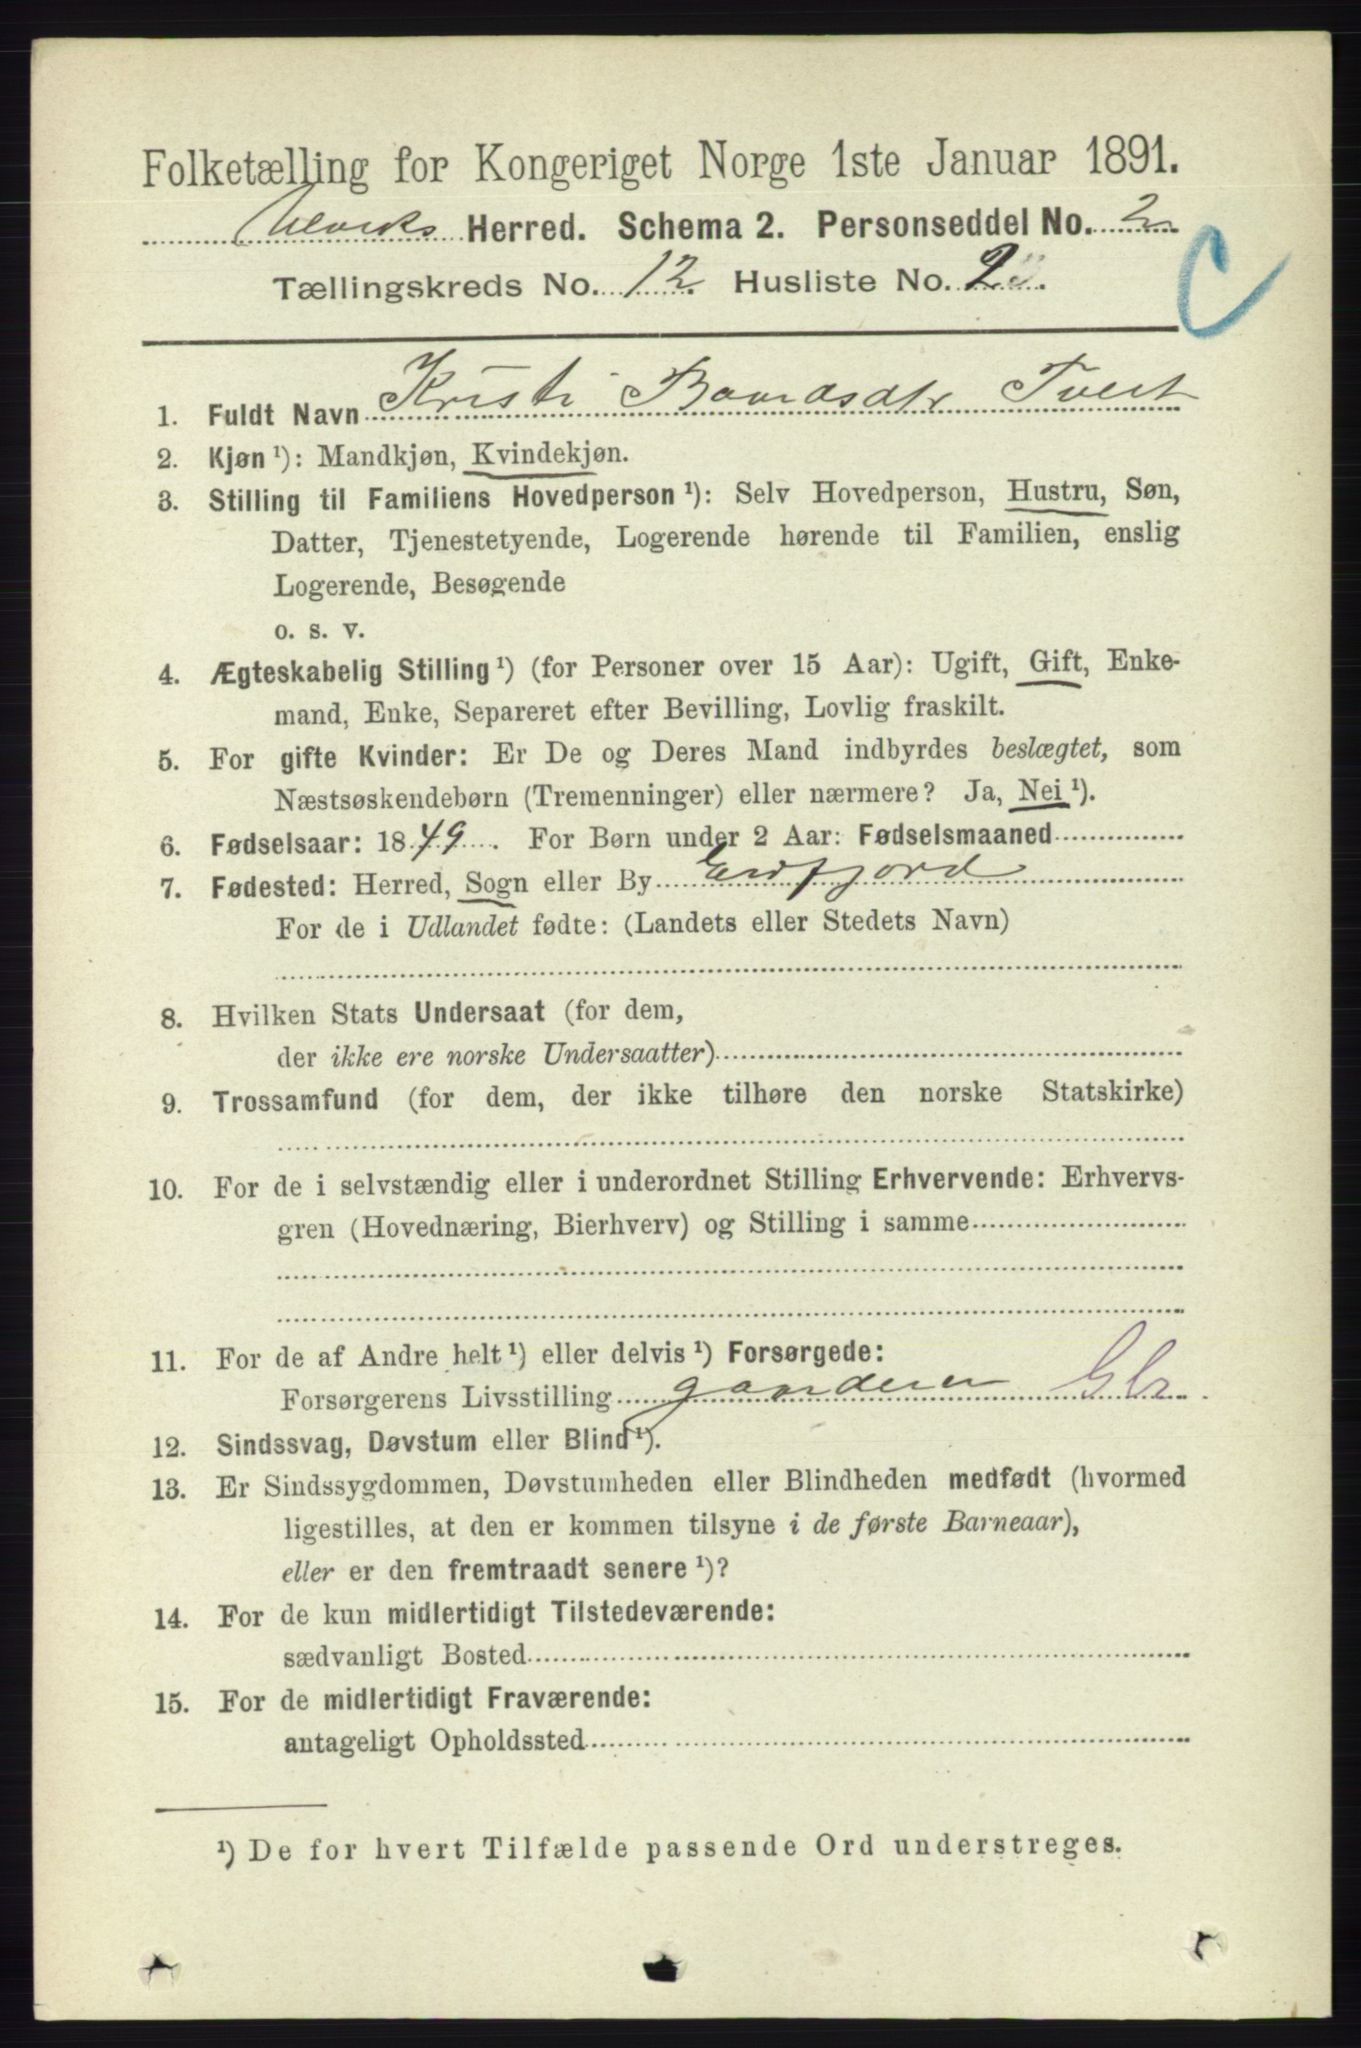 Folketælling for Kongeriget Norge 1ste Januar 1891.
Ulviks Herred. Schema 2. Personseddel No. 2
Tællingskreds No. 12. Husliste No. 2.
C
1. Fuldt Navn Kristi Baardsdtr Tveit
2. Kjøn ¹): Mandkjøn, Kvindekjøn.
3. Stilling til Familiens Hovedperson ¹): Selv Hovedperson, Hustru, Søn,
Datter, Tjenestetyende, Logerende hørende til Familien, enslig
Logerende, Besøgende
o. s. v.
4. Ægteskabelig Stilling ¹) (for Personer over 15 Aar): Ugift, Gift, Enke-
mand, Enke, Separeret efter Bevilling, Lovlig fraskilt.
5. For gifte Kvinder: Er De og Deres Mand indbyrdes beslægtet, som
Næstsøskendebørn (Tremenninger) eller nærmere? Ja, Nei ¹).
6. Fødselsaar: 1849. For Børn under 2 Aar: Fødselsmaaned
7. Fødested: Herred, Sogn eller By Eidfjord
For de i Udlandet fødte: (Landets eller Stedets Navn)
8. Hvilken Stats Undersaat (for dem,
der ikke ere norske Undersaatter)
9. Trossamfund (for dem, der ikke tilhøre den norske Statskirke)
10. For de i selvstændig eller i underordnet Stilling Erhvervende: Erhvervs-
gren (Hovednæring, Bierhverv) og Stilling i samme
11. For de af Andre helt ¹) eller delvis ¹) Forsørgede:
Forsørgerens Livsstilling gaardeier
12. Sindssvag, Døvstum eller Blind ¹).
13. Er Sindssygdommen, Døvstumheden eller Blindheden medfødt (hvormed
ligestilles, at den er kommen tilsyne i de første Barneaar),
eller er den fremtraadt senere ¹)?
14. For de kun midlertidigt Tilstedeværende:
sædvanligt Bosted
15. For de midlertidigt Fraværende:
antageligt Opholdssted
¹) De for hvert Tilfælde passende Ord understreges.